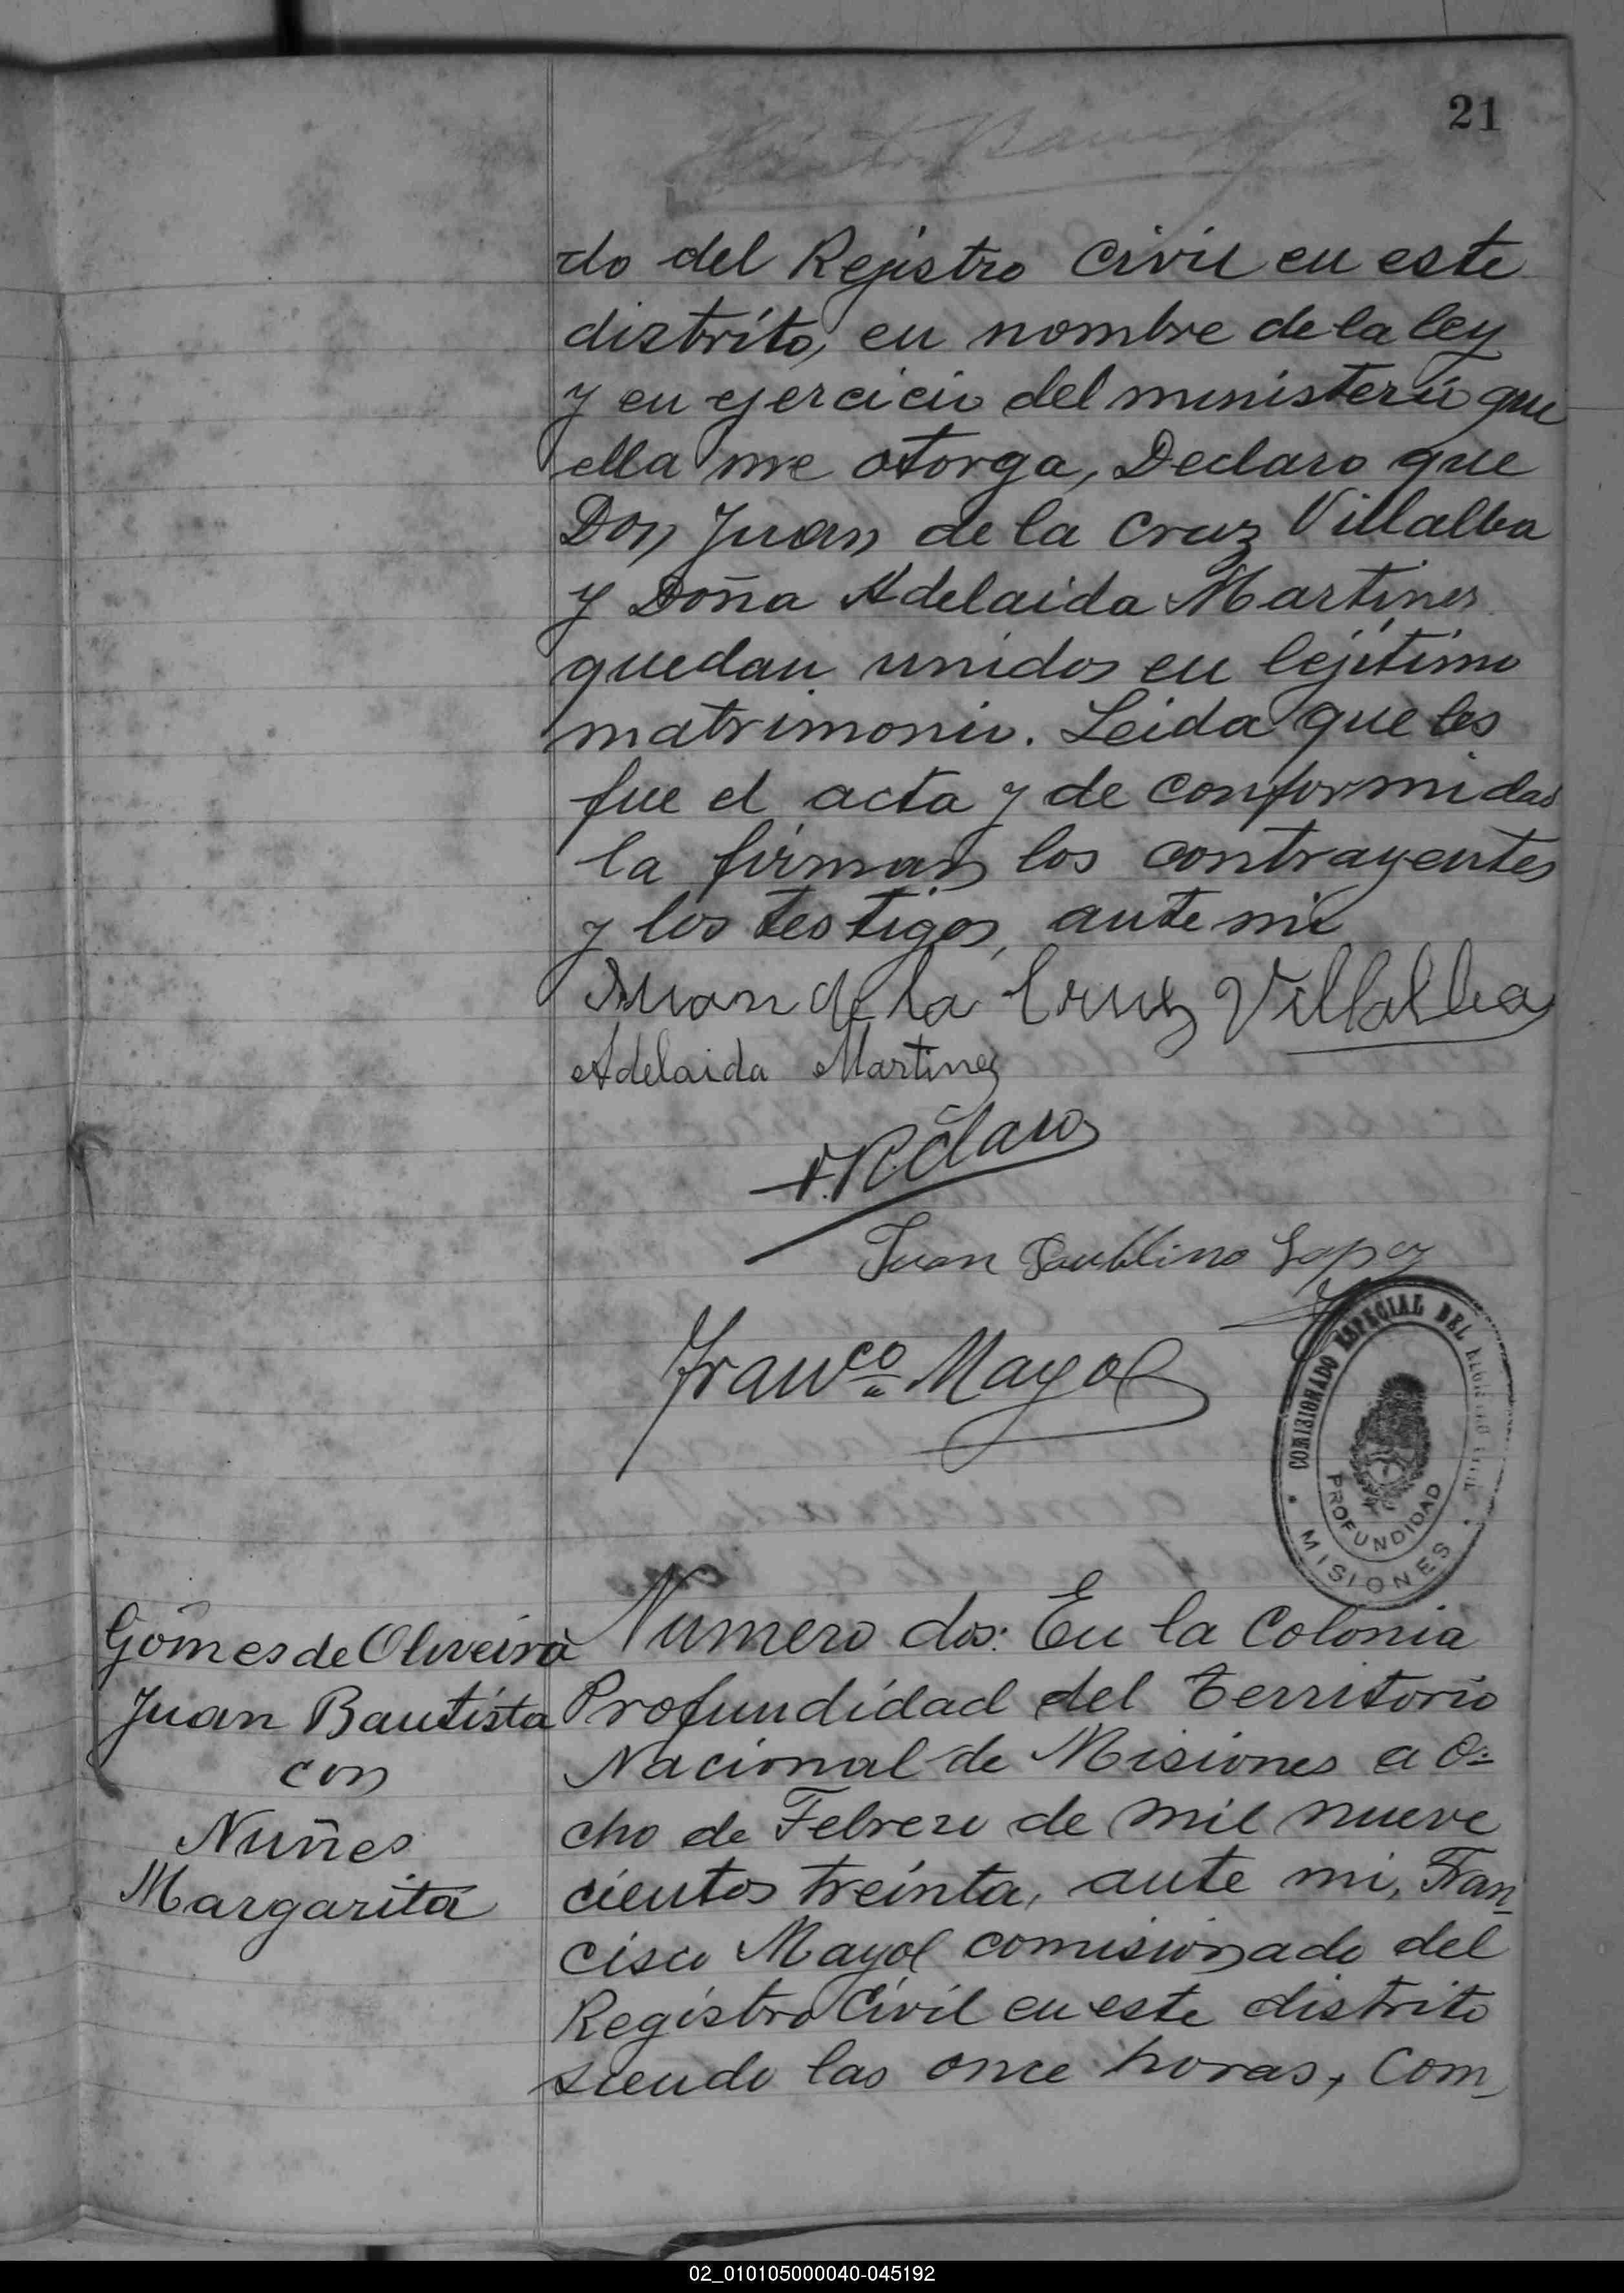 21
do del Rejistro Civil en este
distrito, en nombre de la ley
y en ejercicio del ministerio que
ella me otorga, Declaro que
Don Juan de la Cruz Villalba
y Doña Adelaida Martines
quedan unidos en lejitimo
matrimonio. Leida que les
fue el acta y de conformidad
la firman los contrayentes
y los testigos, ante mi
Juan de la Cruz Villalba
Adelaida Martinez
Claro
Juan Paublino Lopez
Franco Mayol
COMISIONADO ESPECIAL DEL REGISTRO CIVIL
PROFUNDIDAD
MISIONES
Gomes de Oliveira
Juan Bautista
con
Nuñes
Margarita
Numero dos: En la Colonia
Profundidad del Territorio
Nacional de Misiones a o-
cho de Febrero de mil nueve
cientos treinta, ante mi, Fran_
cisco Mayol comisionado del
Registro Civil en este distrito
siendo las once horas, Com_
02_010105000040-045192